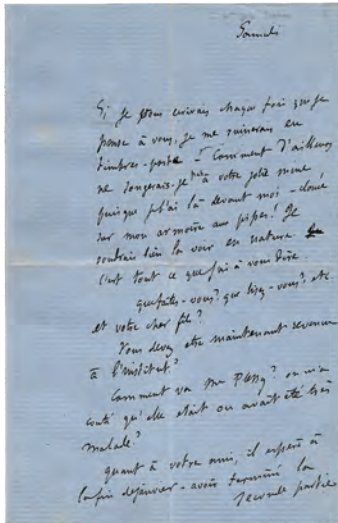 Samedi
Si je vous écrivais chaque fois que je
pense à vous, je me ruinerais en
timbres-poste - Comment d'ailleurs
ne songerais-je pas à votre jolie mine
puisque je l'ai là devant moi - cloué
sur mon armoire aux pipes! Je
voudrais bien la voir en nature.
C'est tout ce que j'ai à vous dire.
que faites-vous? que lisez-vous? etc.
et votre cher fils?
Vous devez être maintenant revenue
à l'institut?
Comment va Mme Plessy? on m'a
conté qu'elle était ou avait été très
malade?
quant à votre ami, il espère à
la fin de janvier - avoir terminé la
seconde partie